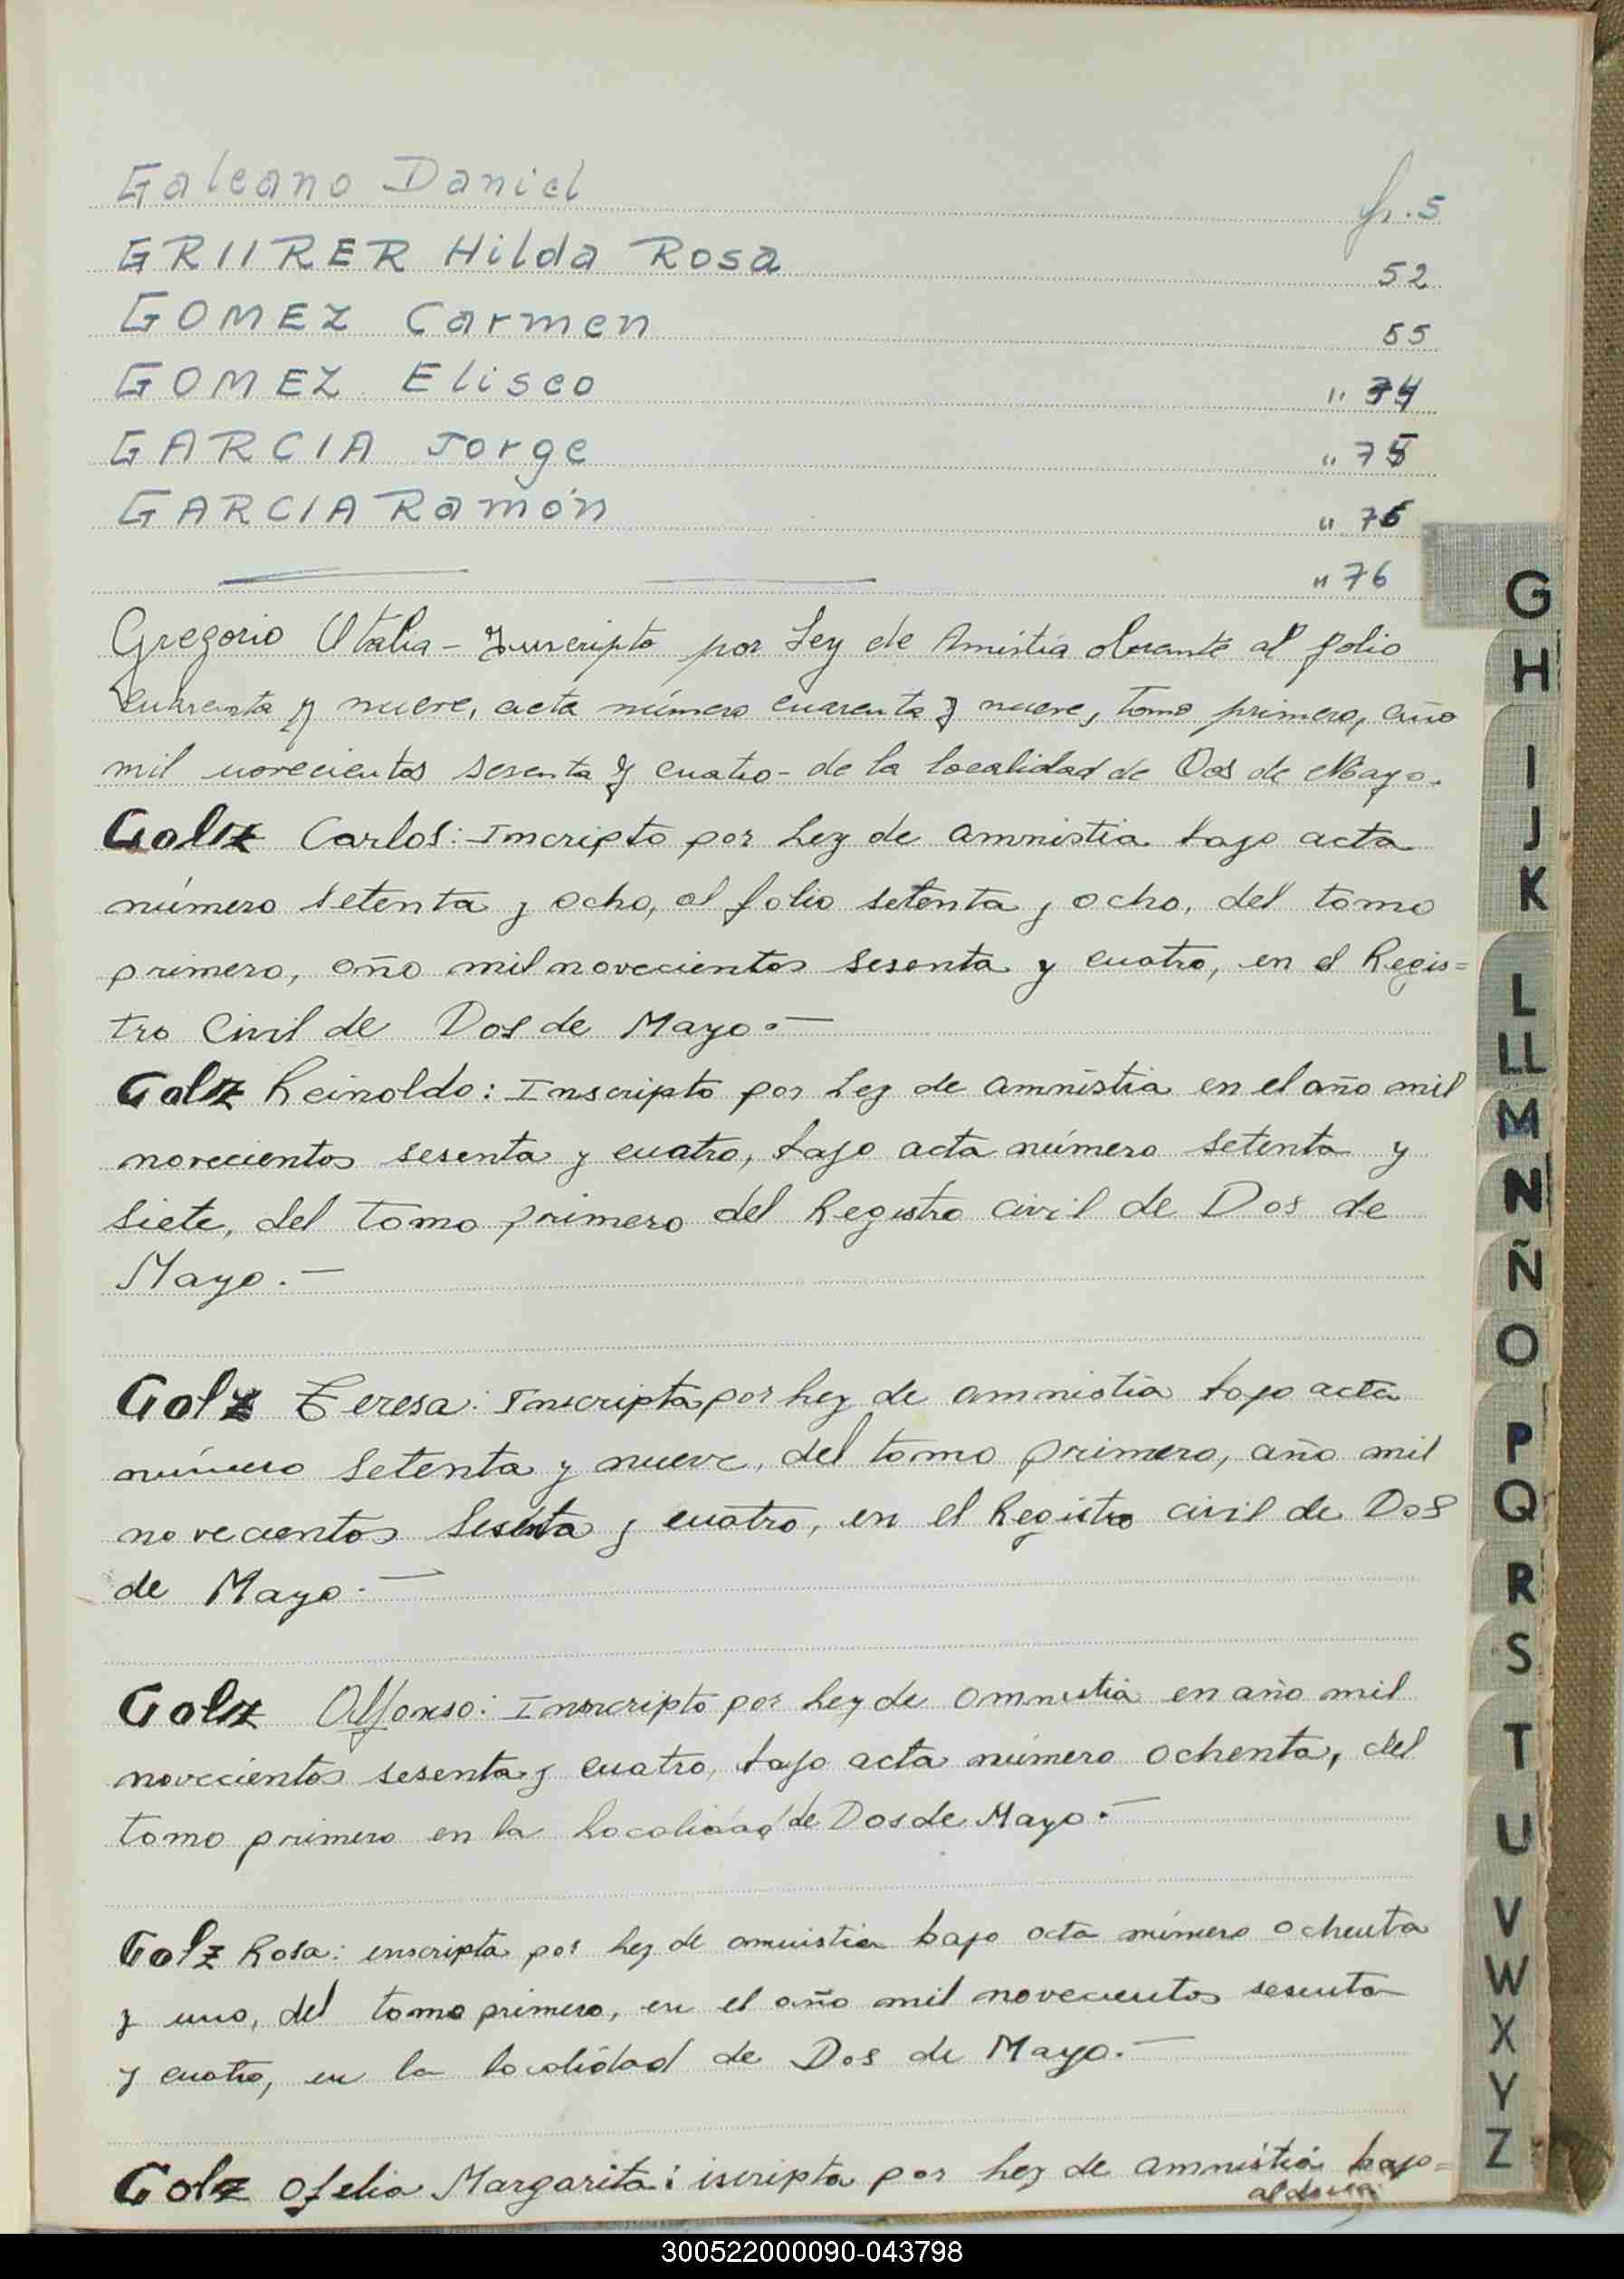 Galeano Daniel fr. 5
GRIIRER Hilda Rosa 52
GOMEZ Carmen 55
GOMEZ Eliseo " 74
GARCIA Jorge " 75
GARCIA Ramón " 76
" 76
Gregorio Otalia - Inscripto por Ley de Amistia obrante al folio
cuarenta y nueve, acta número cuarenta y nueve, tomo primero, año
mil novecientos sesenta y cuatro - de la localidad de Dos de Mayo.
Golz Carlos: Imcripto por Ley de amnistia bajo acta
número setenta y ocho, al folio setenta y ocho, del tomo
primero, año mil novecientos sesenta y cuatro, en el Regis=
tro Civil de Dos de Mayo.—
Golz Reinoldo: Inscripto por Ley de amnistia en el año mil
novecientos sesenta y cuatro, bajo acta número setenta y
siete, del tomo primero del Registro civil de Dos de
Mayo.—
Golz Teresa: Inscripta por Ley de amnistia bajo acta
número setenta y nueve, del tomo primero, año mil
novecientos sesenta y cuatro, en el Registro civil de Dos
de Mayo.—
Golz Alfonso: Inscripto por Ley de amnistia en año mil
novecientos sesenta y cuatro, bajo acta número ochenta, del
tomo primero en la Localidad de Dos de Mayo.—
Golz Rosa: inscripta por Ley de amnistia bajo acta número ochenta
y uno, del tomo primero, en el año mil novecientos sesenta
y cuatro, en la localidad de Dos de Mayo.—
Golz Ofelia Margarita: iscripta por Ley de amnistia bajo=
al dorso
G
H
I
J
K
L
LL
M
N
Ñ
O
P
Q
R
S
T
U
V
W
X
Y
Z
300522000090-043798